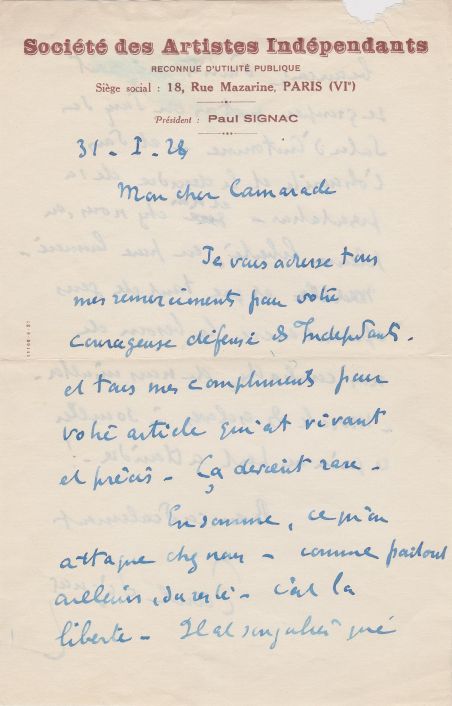 Société des Artistes Indépendants
RECONNUE D'UTILITÉ PUBLIQUE
Siège social : 18, Rue Mazarine, PARIS (VIᵉ)
Président : Paul SIGNAC
31 - I. 28
Mon cher Camarade
Je vous adresse tous
mes remerciements pour votre
courageuse défense des Indépdants.
et tous mes compliments pour
votre article qui est vivant
et précis - Ça devient rare -
En somme, ce qu'on
attaque chez nous - comme partout
ailleurs, du reste - c'est la
liberté - Il est singulier que